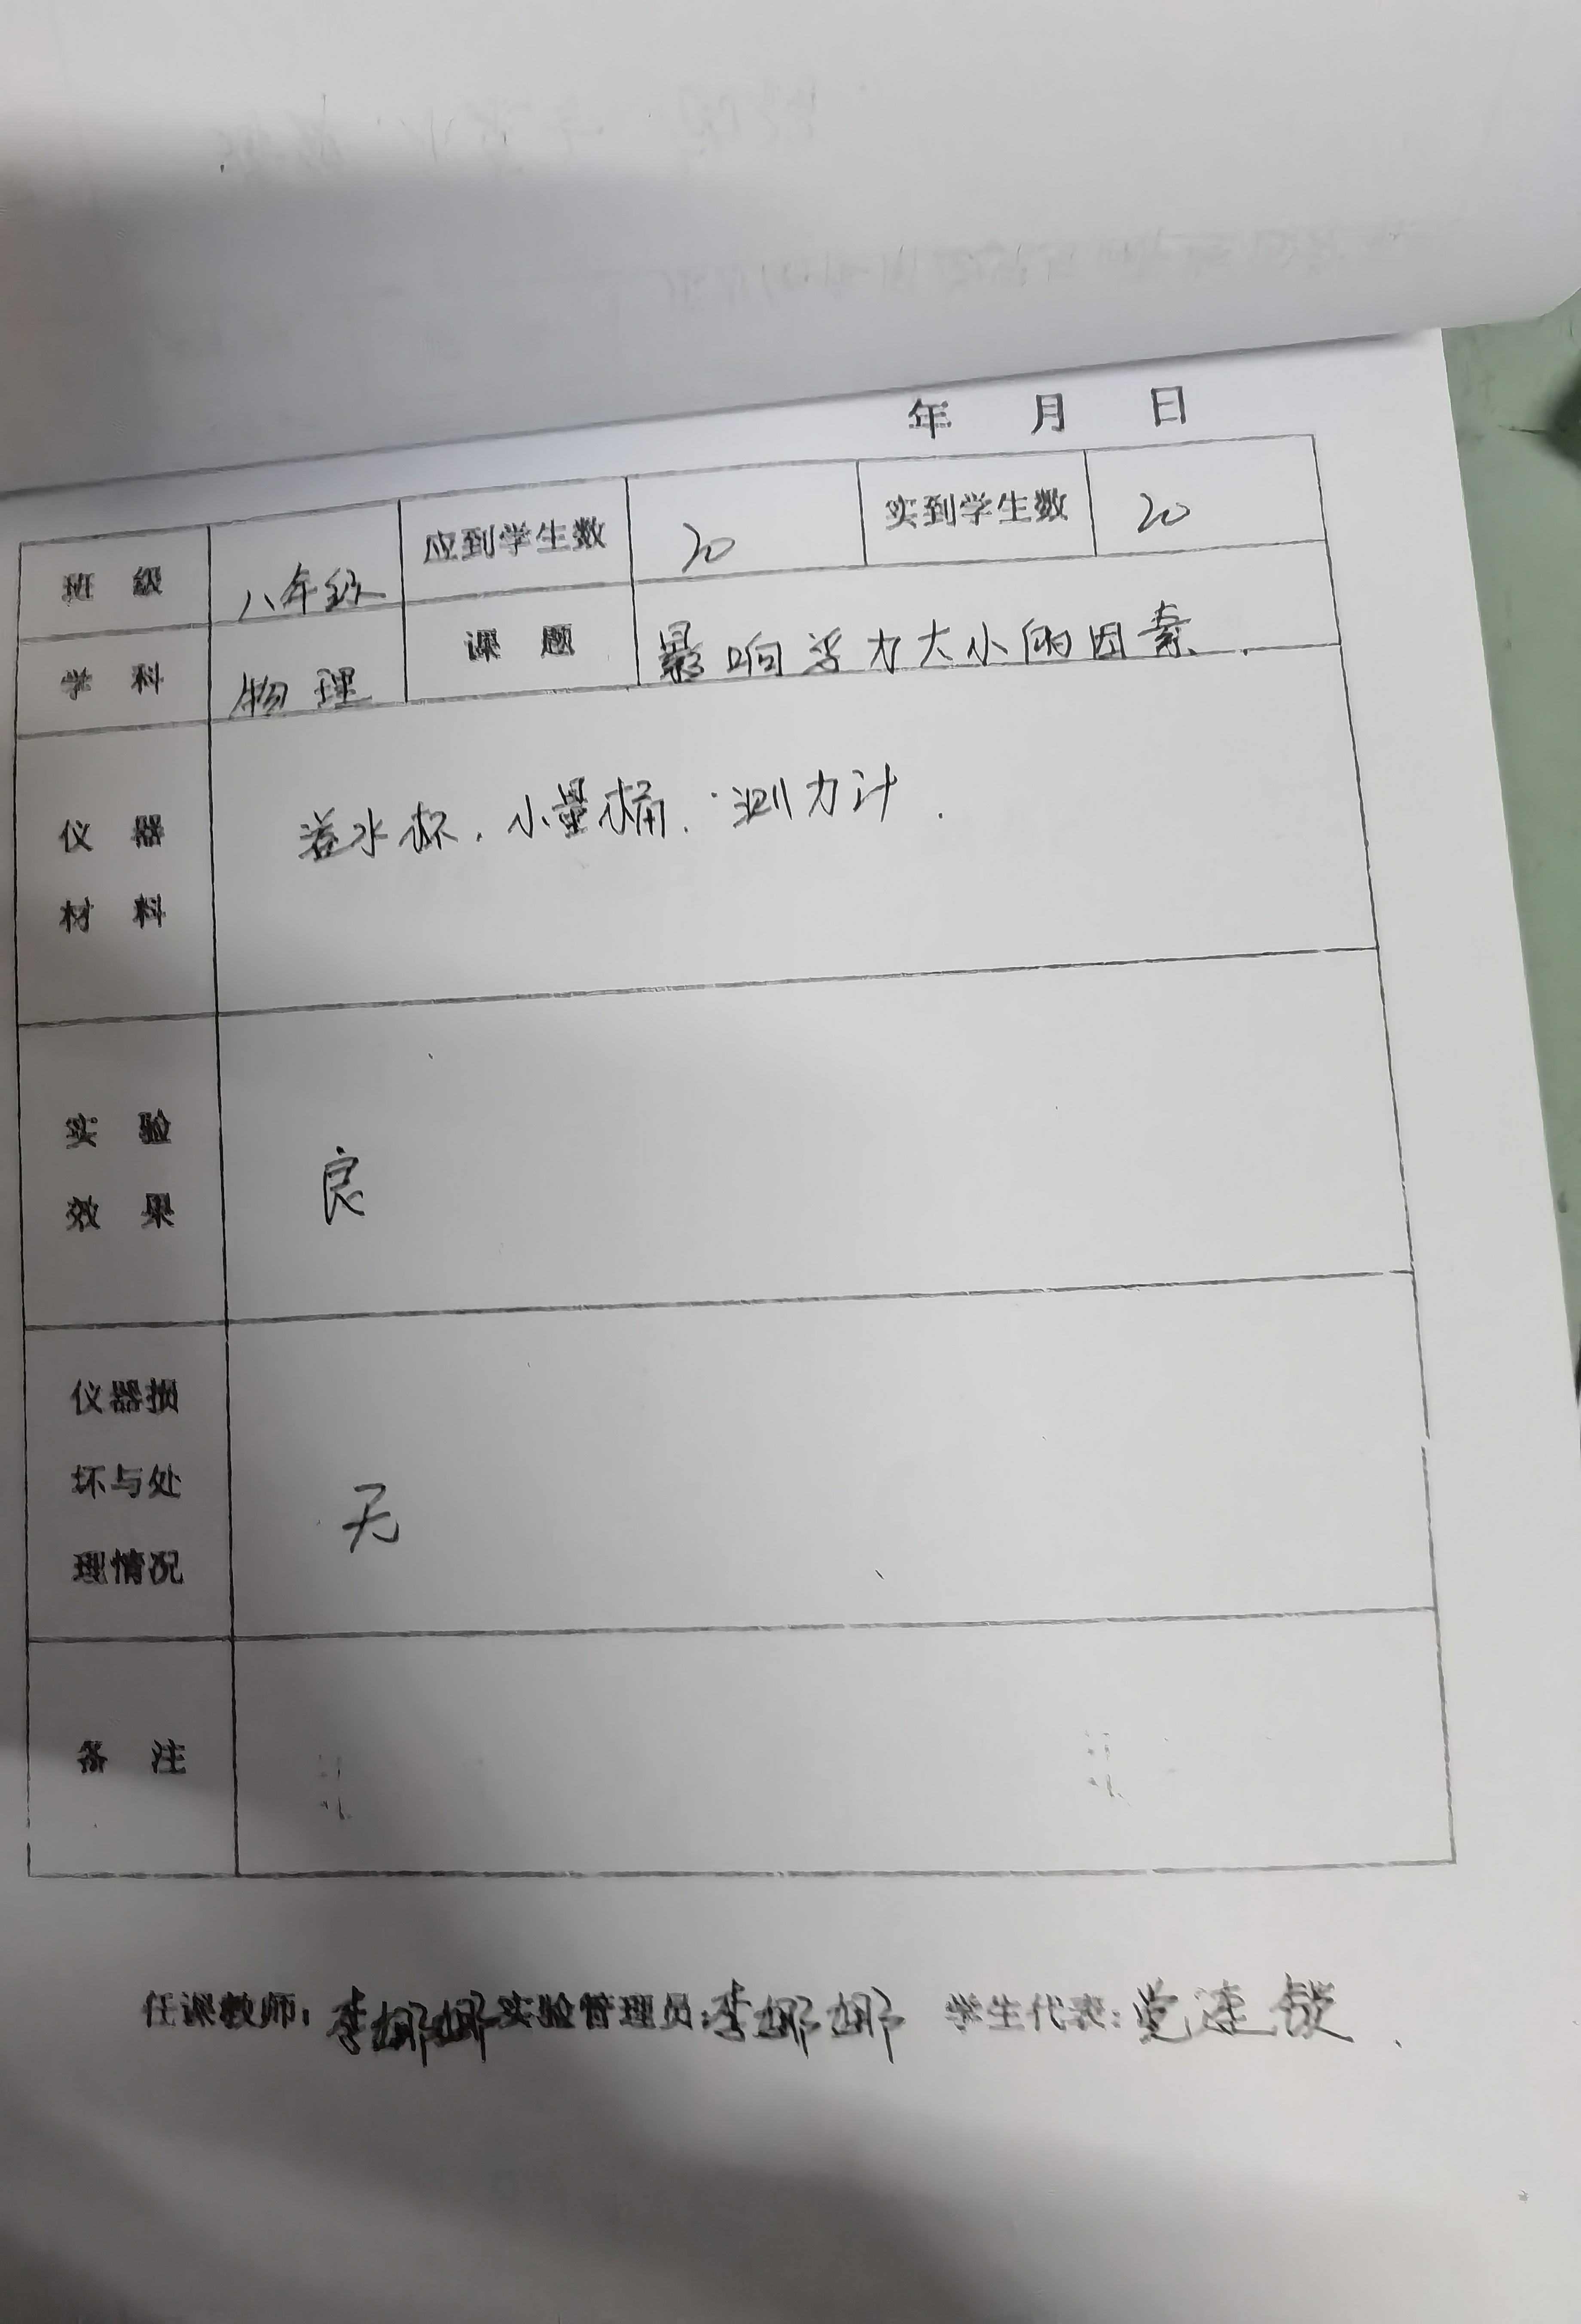 年 月 日
班 级 八年级 应到学生数 20 实到学生数 20
学 科 物理 课 题 影响浮力大小的因素.
仪 器
材 料
溢水杯. 小量桶. 测力计.
实 验
效 果
良
仪器损
坏与处
理情况
无
备 注
任课教师: 李娜娜 实验管理员: 李娜娜 学生代表: 党建